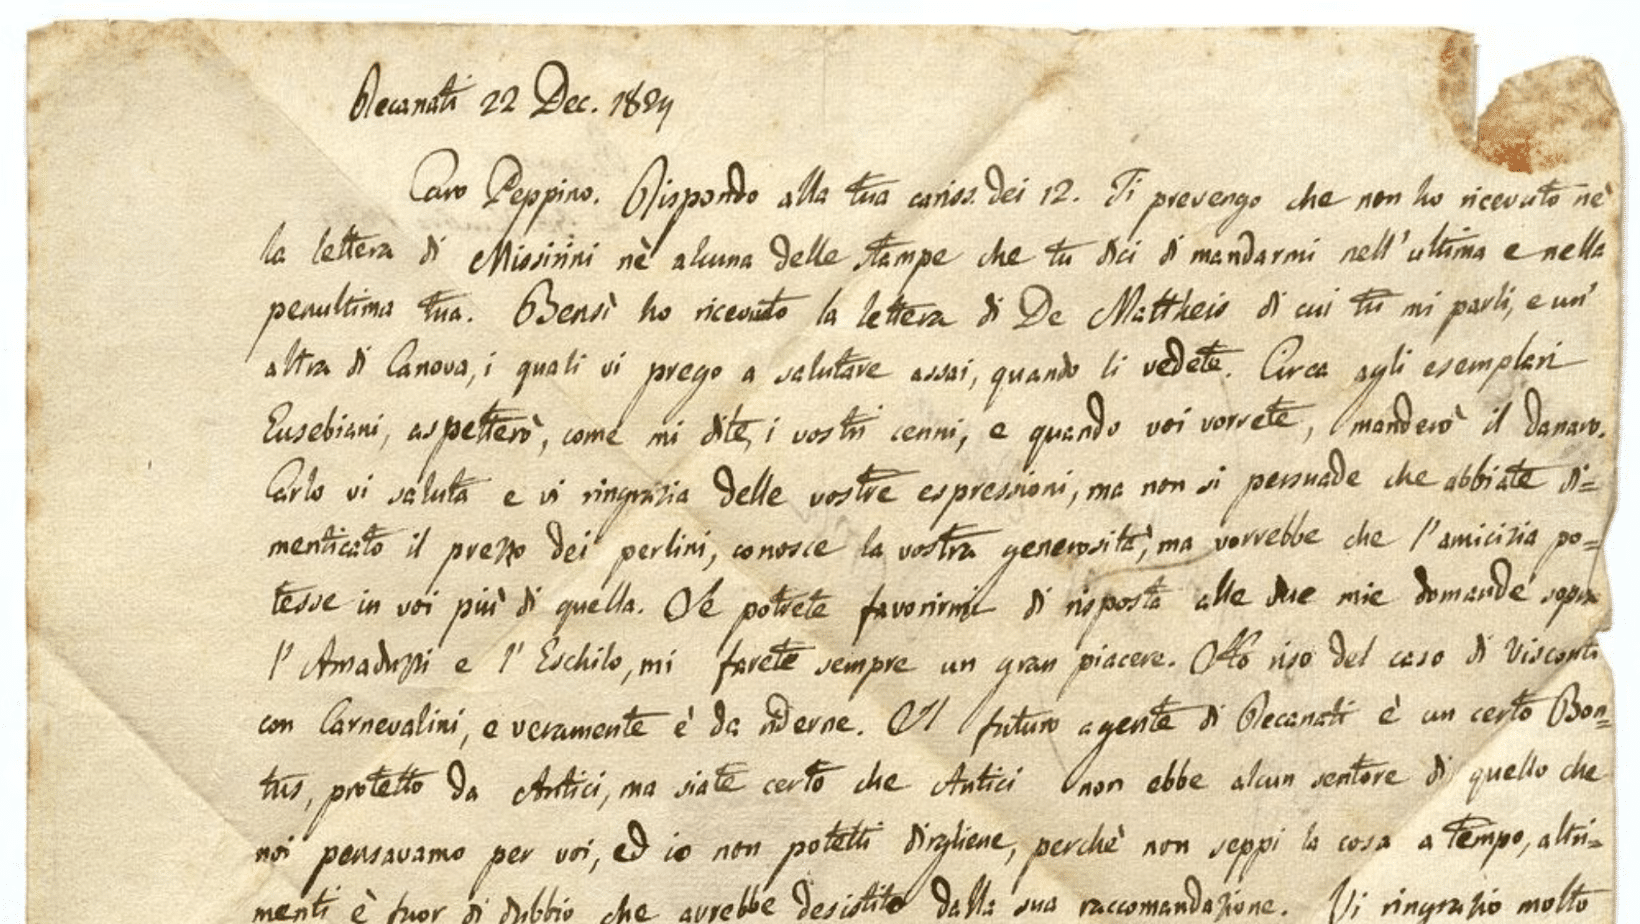 Recanati 22 Dec. 1824
Caro Peppino. Rispondo alla tua cariss. dei 12. Ti prevengo che non ho ricevuto nè
la lettera di Missirini nè alcuna delle stampe che tu dici di mandarmi nell'ultima e nella
penultima tua. Bensì ho ricevuto la lettera di De Mattheis di cui tu mi parli, e un'
altra di Canova, i quali vi prego a salutare assai, quando li vedete. Circa agli esemplari
Eusebiani, aspetterò, come mi dite, i vostri cenni, e quando voi vorrete, manderò il danaro.
Carlo vi saluta e vi ringrazia delle vostre espressioni, ma non si persuade che abbiate di=
menticato il prezzo dei perlini, conosce la vostra generosità, ma vorrebbe che l'amicizia po=
tesse in voi più di quella. Se potrete favorirmi di risposta alle due mie domande sopra
l'Amaduzzi e l'Eschilo, mi farete sempre un gran piacere. Ho riso del caso di Visconti
con Carnevalini, e veramente è da riderne. Il futuro agente di Recanati è un certo Bon=
tus, protetto da Antici, ma siate certo che Antici non ebbe alcun sentore di quello che
noi pensavamo per voi, ed io non potetti dirgliene, perchè non seppi la cosa a tempo, altri=
menti è fuor di dubbio che avrebbe desistito dalla sua raccomandazione. Vi ringrazio molto